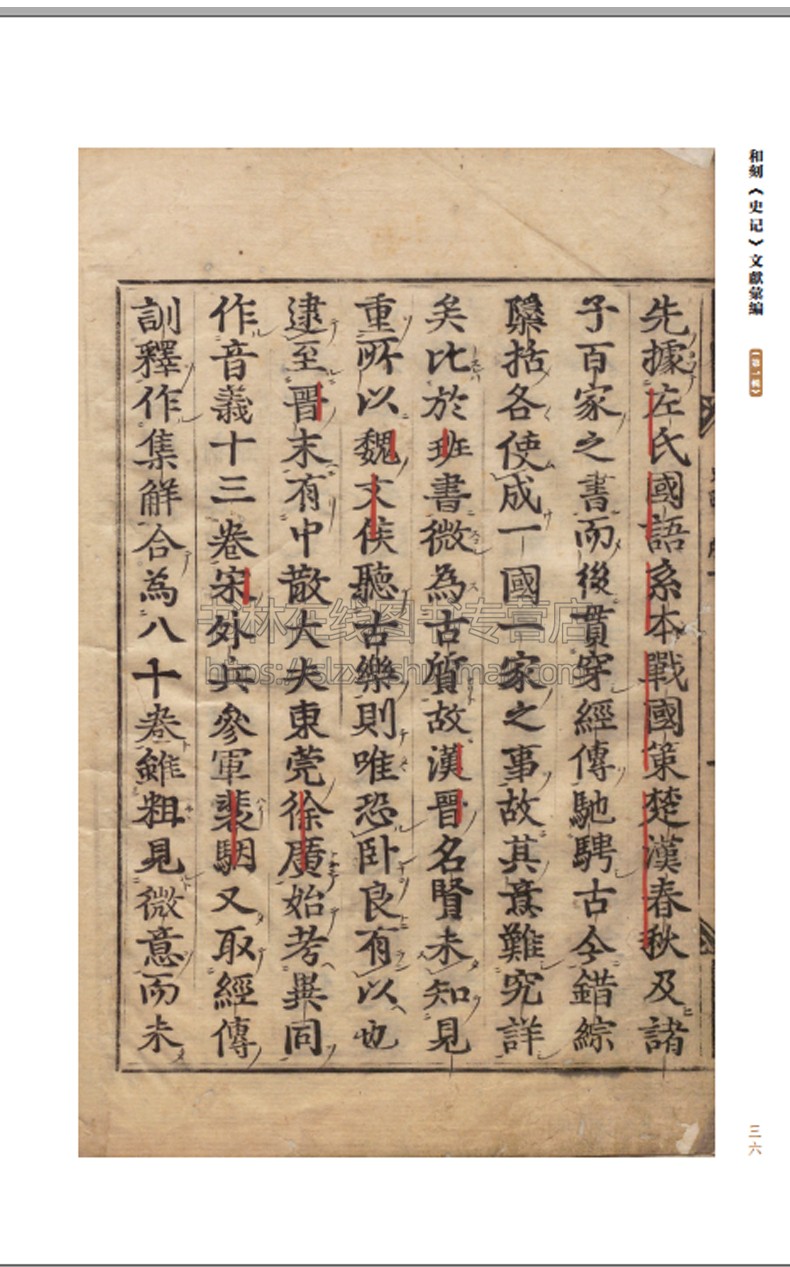 和刻《史记》文獻彙編
【第一輯】
先據左氏國語系本戰國策楚漢春秋及諸
子百家之書而後貫穿經傳馳騁古今錯綜
櫽括各使成一國一家之事故其意難究詳
矣比於班書微為古質故漢晉名賢未知見
重所以魏文侯聽古樂則唯恐卧良有以也
逮至晋末有中散大夫東莞徐廣始考異同
作音義十三卷宋外兵參軍裴駰又取經傳
訓釋作集解合為八十卷雖粗見微意而未
书林在线图书专营店
三六